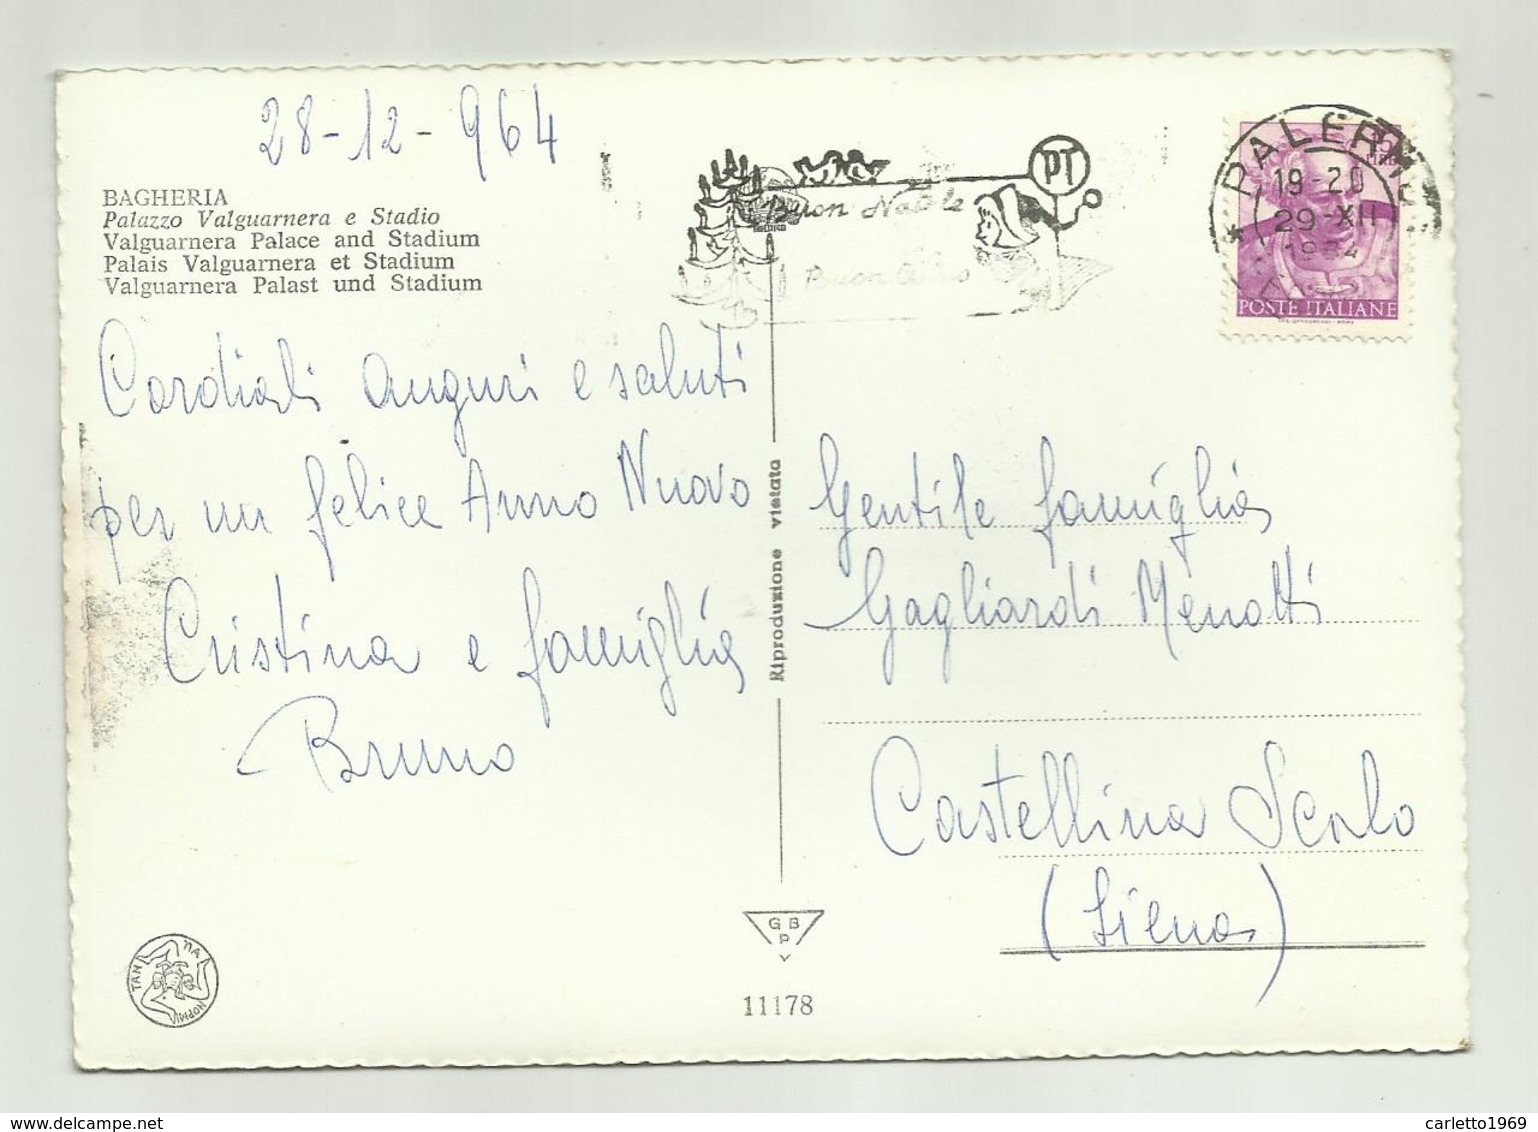 28-12-964
BAGHERIA
Palazzo Valguarnera e Stadio
Valguarnera Palace and Stadium
Palais Valguarnera et Stadium
Valguarnera Palast und Stadium
Cordiali auguri e saluti
per un felice Anno Nuovo
Cristina e famiglia
Bruno
PT
Buon Natale
Buon Anno
PALERMO
19-20
29-XII
1964
15
LIRE
POSTE ITALIANE
Riproduzione vietata
Gentile famiglia
Gagliardi Menotti
Castellina Scalo
(Siena)
G B
P
V
11178
www.delcampe.net
carletto1969